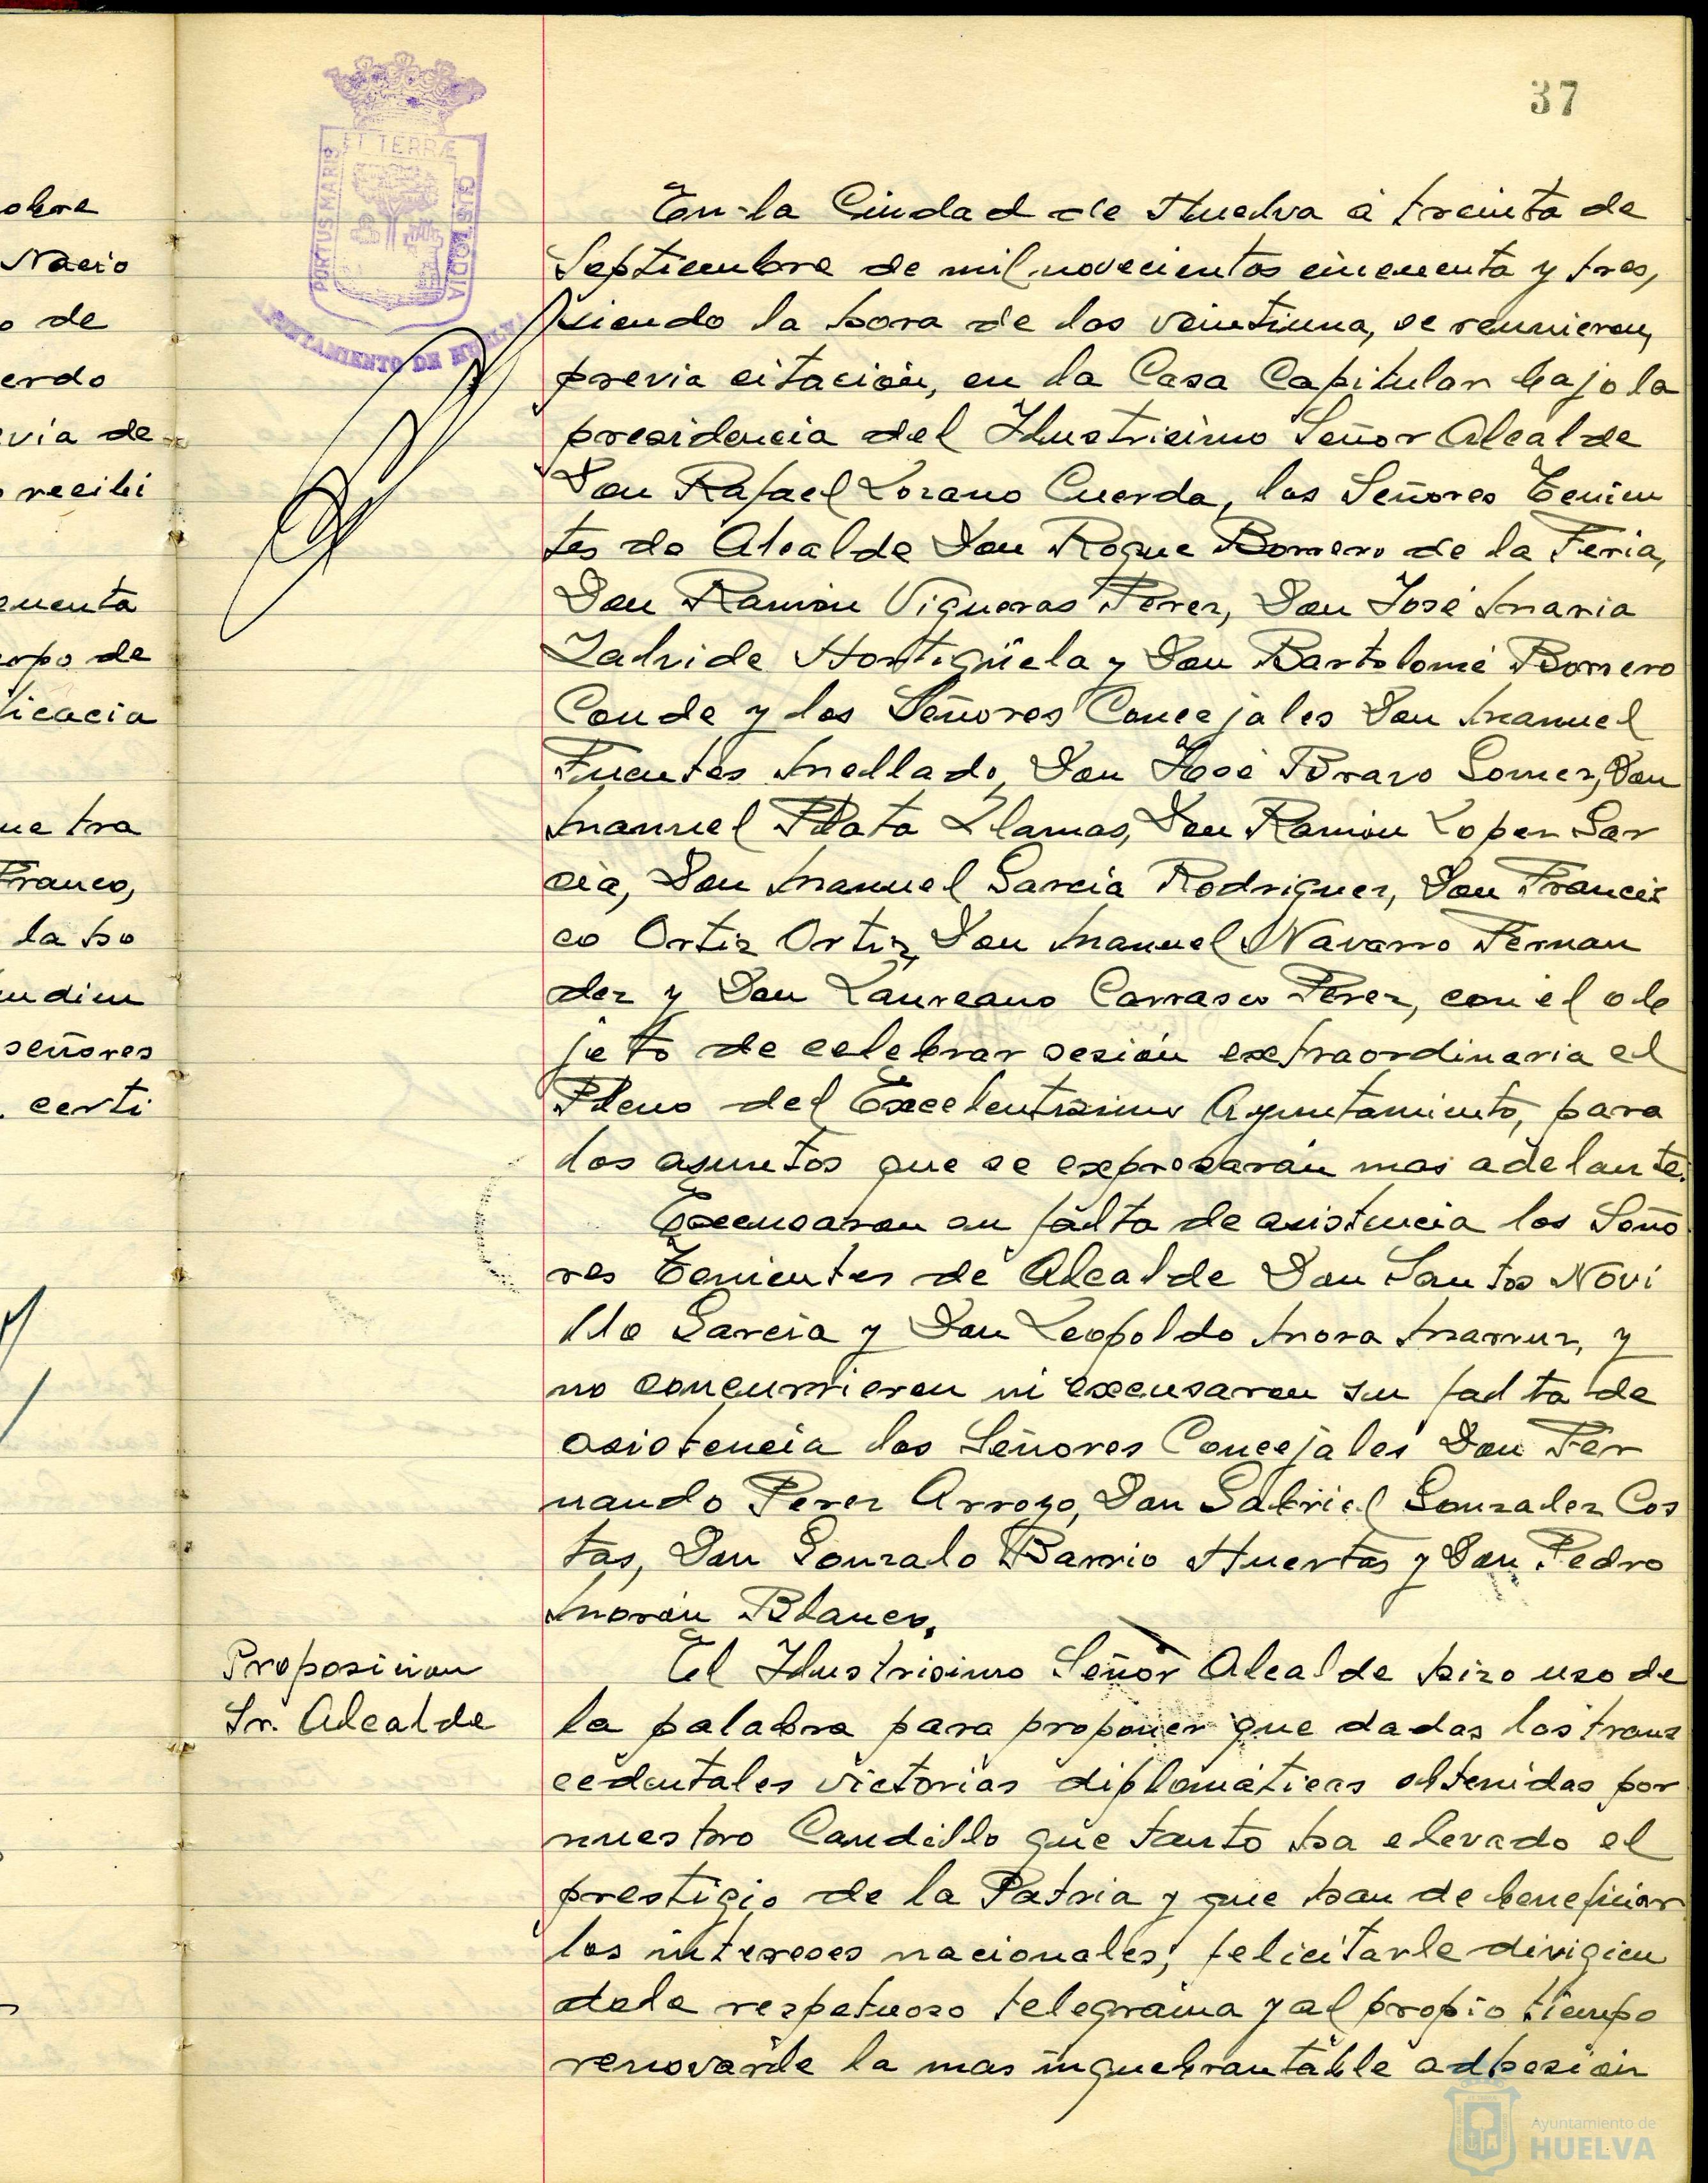 37
ET TERRÆ
PORTUS MARIS
CUSTODIA
AYUNTAMIENTO DE HUELVA
obre
Nacio
o de
erdo
via de
recibi
cuenta
erpo de
ficacia
ue tra
Franco,
la ho
endien
señores
certi
En la Ciudad de Huelva a treinta de
Septiembre de mil novecientos cincuenta y tres,
siendo la hora de las veintiuna, se reunieron,
previa citación, en la Casa Capitular bajo la
presidencia del Ilustrisimo Señor Alcalde
Don Rafael Lozano Cuerda, los Señores Tenien
tes de Alcalde Don Roque Borrero de la Feria,
Don Ramón Vigueras Perez, Don José Maria
Zalvide Hortigüela y Don Bartolomé Borrero
Conde y los Señores Concejales Don Manuel
Fuentes Mellado, Don José Bravo Gomez, Don
Manuel Plata Llamas, Don Ramón Lopez Gar
cia, Don Manuel Garcia Rodriguez, Don Francis
co Ortiz Ortiz, Don Manuel Navarro Fernan
dez y Don Laureano Carrasco Perez, con el ob
jeto de celebrar sesión extraordinaria el
Pleno del Excelentisimo Ayuntamiento, para
los asuntos que se expresarán mas adelante.
Excusaron su falta de asistencia los Seño
res Tenientes de Alcalde Don Santos Novi
llo Garcia y Don Leopoldo Mora Marruz, y
no concurrieron ni excusaron su falta de
asistencia los Señores Concejales Don Fer
nando Perez Arroyo, Don Gabriel Gonzalez Cos
tas, Don Gonzalo Barrio Huertas y Don Pedro
Morón Blanco.
Proposicion
Sr. Alcalde
El Ilustrisimo Señor Alcalde hizo uso de
la palabra para proponer que dadas las trans
cedentales victorias diplomáticas obtenidas por
nuestro Caudillo que tanto ha elevado el
prestigio de la Patria y que han de beneficiar
los intereses nacionales, felicitarle dirigien
dole respetuoso telegrama y al propio tiempo
renovarle la mas inquebrantable adhesión
Ayuntamiento de
HUELVA